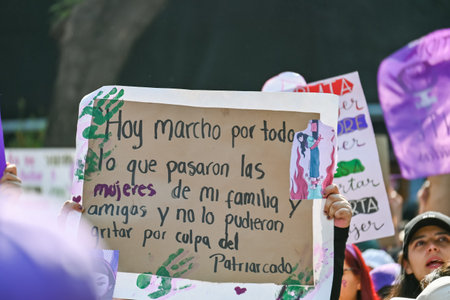 Hoy marcho por todo
lo que pasaron las
mujeres de mi familia y
amigas y no lo pudieron
gritar por culpa del
Patriarcado